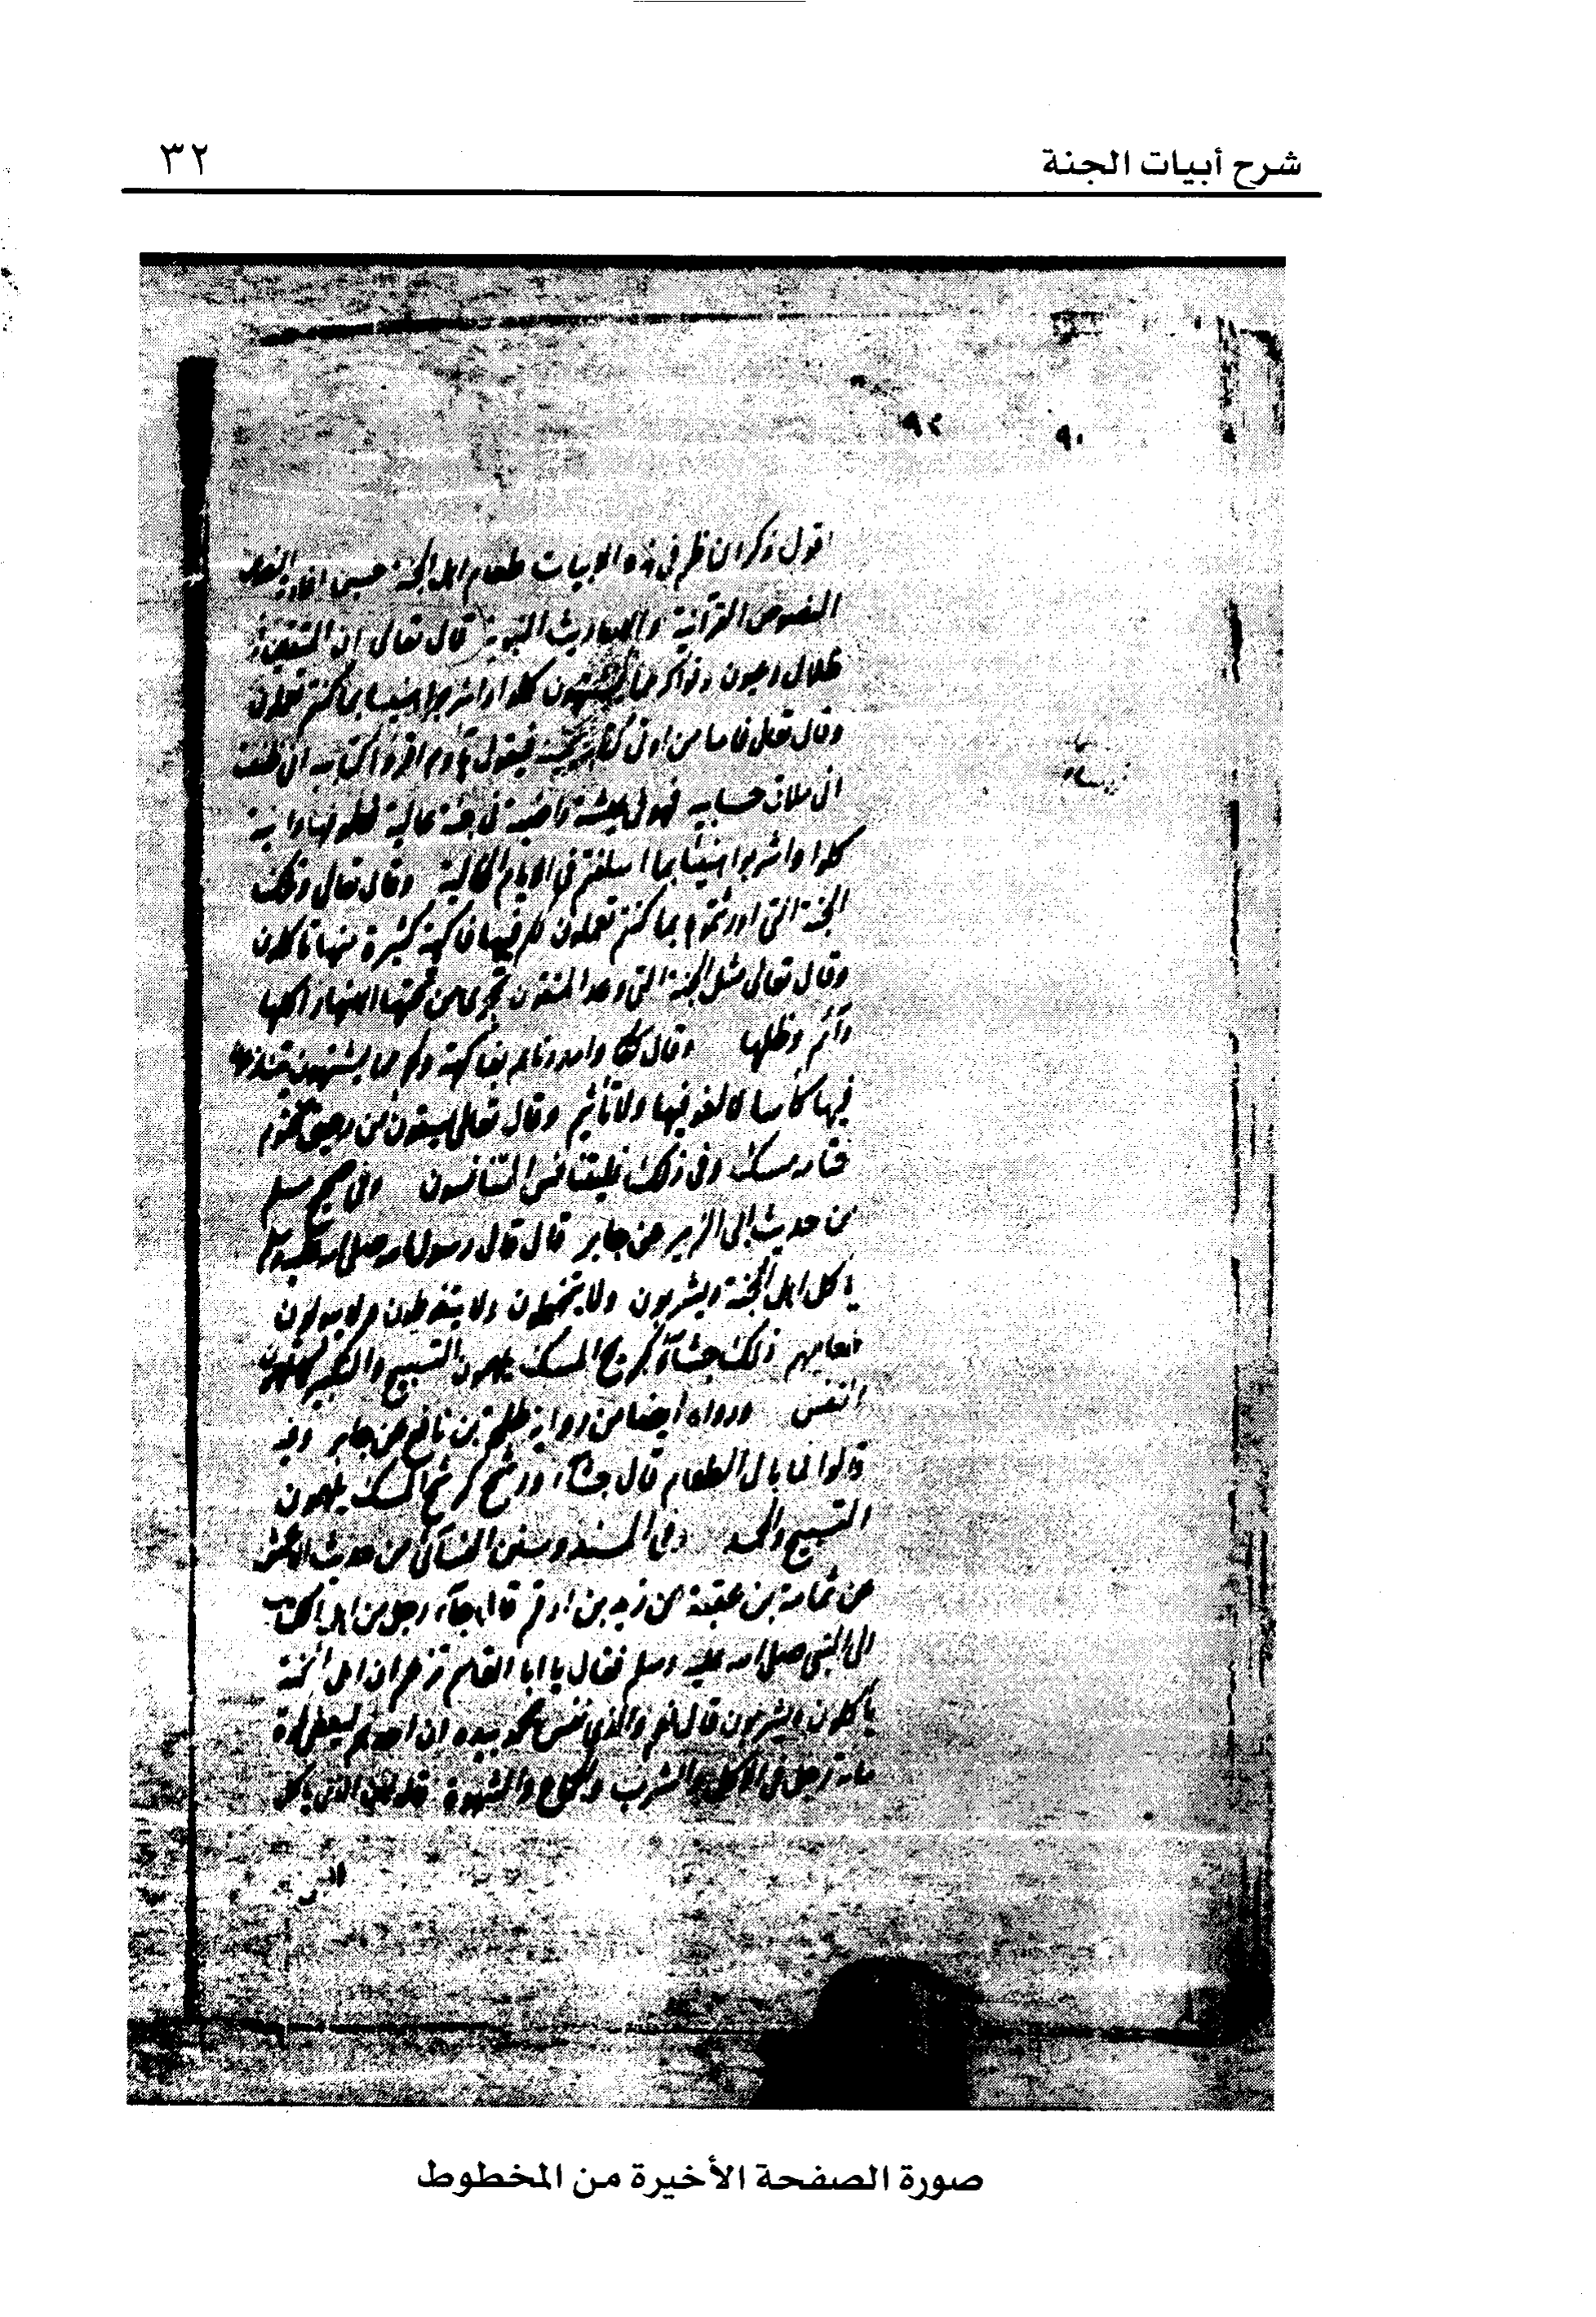 شرح أبيات الجنة
٣٢
٩٢ ٩٠
اقول ذكر الناظم في هذه الابيات طعام اهل الجنة حسبما افادته النصوص
النصوص القرآنية والاحاديث النبوية قال تعالى ان المتقين في
ظلال وعيون وفواكه مما يشتهون كلوا واشربوا هنيئا بما كنتم تعملون
وقال تعالى فاما من اوتي كتابه بيمينه فيقول هاؤم اقرؤا كتابيه اني ظننت
اني ملاق حسابيه فهو في عيشة راضية في جنة عالية قطوفها دانية
كلوا واشربوا هنيئا بما اسلفتم في الايام الخالية وقال تعالى وتلك
الجنة التي اورثتموها بما كنتم تعملون لكم فيها فاكهة كثيرة منها تاكلون
وقال تعالى مثل الجنة التي وعد المتقون تجري من تحتها الانهار اكلها
دآئم وظلها وقال تعالى وامددناهم بفاكهة ولحم مما يشتهون يتنازعون
فيها كأسا لا لغو فيها ولا تأثيم وقال تعالى يسقون من رحيق مختوم
ختامه مسك وفي ذلك فليتنافس المتنافسون وفي صحيح مسلم
من حديث ابي الزبير عن جابر قال قال رسول الله صلى الله عليه وسلم
يأكل اهل الجنة ويشربون ولا يتمخطون ولا يتغوطون ولا يبولون
طعامهم ذلك جشآء كريح المسك يلهمون التسبيح والتكبير كما يلهمون
النفس ورواه ايضا من رواية طلحة بن نافع عن جابر وفيه
قالوا فما بال الطعام قال جشآء ورشح كرشح المسك يلهمون
التسبيح والحمد وفي المسند وسنن النسآئي من حديث الاعمش
عن ثمامة بن عقبة عن زيد بن ارقم قال جآء رجل من اهل الكتاب
الى النبي صلى الله عليه وسلم فقال يا ابا القاسم تزعم ان اهل الجنة
يأكلون ويشربون قال نعم والذي نفس محمد بيده ان احدهم ليعطى قوة
مائة رجل في الاكل والشرب والجماع والشهوة قال فان الذي ياكل
صورة الصفحة الأخيرة من المخطوط